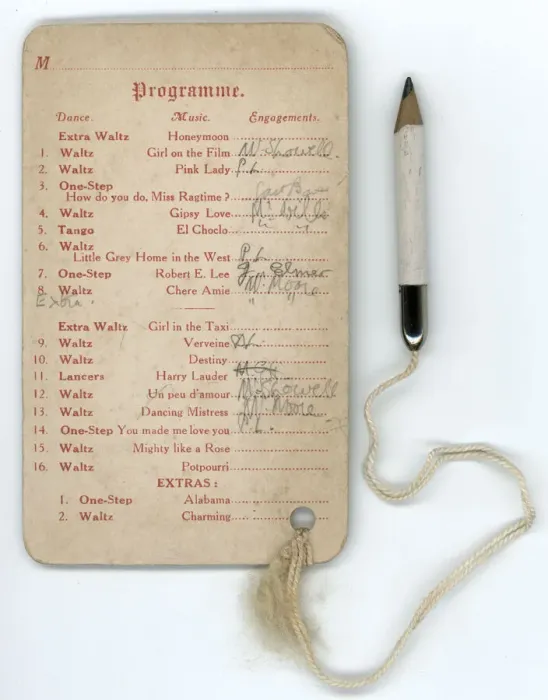 M
Programme.
Dance. Music. Engagements.
Extra Waltz Honeymoon
1. Waltz Girl on the Film W. Showell.
2. Waltz Pink Lady P.L.
3. One-Step
How do you do, Miss Ragtime?
4. Waltz Gipsy Love
5. Tango El Choclo " "
6. Waltz
Little Grey Home in the West P. L.
7. One-Step Robert E. Lee G. Elmer
8. Waltz Chere Amie W. Moore
Extra. " "
Extra Waltz Girl in the Taxi
9. Waltz Verveine
10. Waltz Destiny
11. Lancers Harry Lauder
12. Waltz Un peu d'amour W. Showell
13. Waltz Dancing Mistress W. Moore
14. One-Step You made me love you P.L.
15. Waltz Mighty like a Rose
16. Waltz Potpourri
EXTRAS:
1. One-Step Alabama
2. Waltz Charming